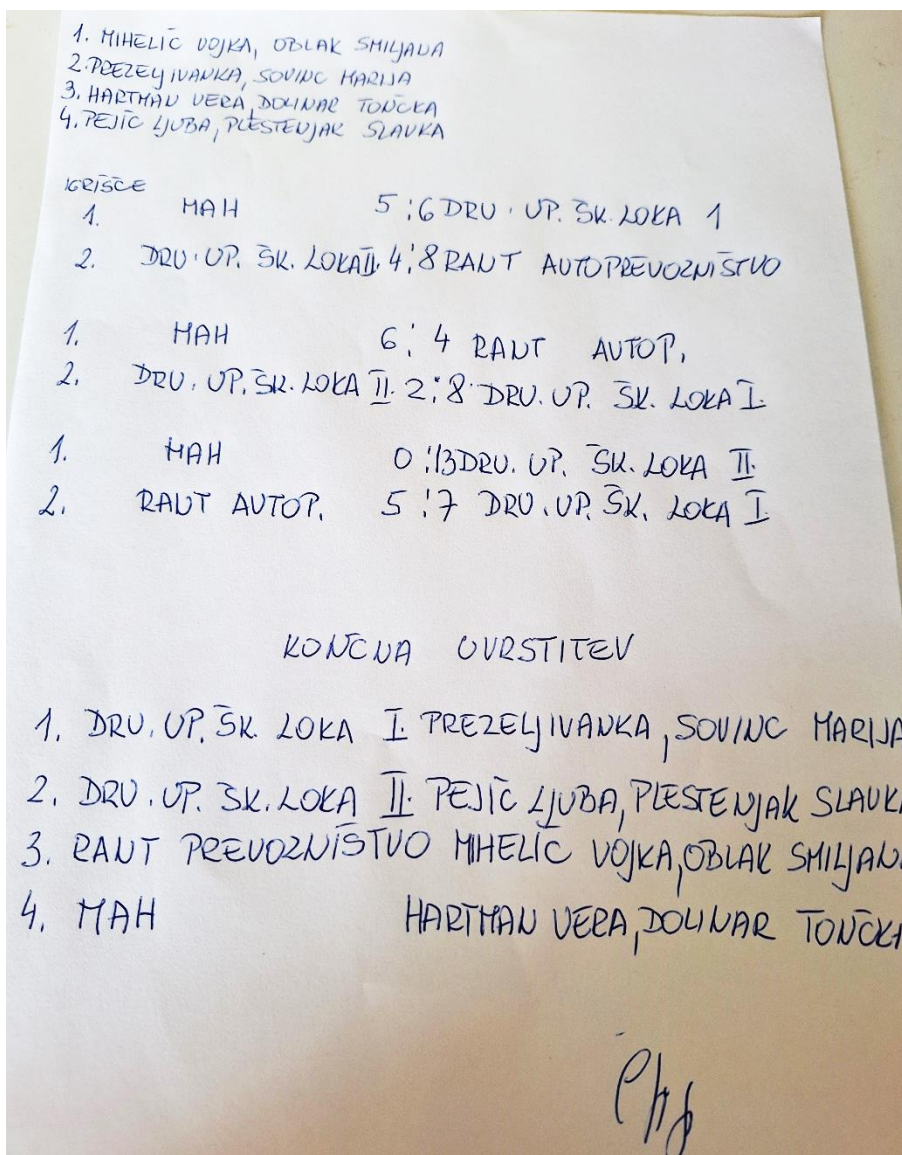 1. MIHELIČ VOJKA, OBLAK SMILJANA
2. PREZELJ IVANKA, SOVINC MARIJA
3. HARTMAN VERA, DOLINAR TONČKA
4. PEJIČ LJUBA, PLESTENJAK SLAVKA
IGRIŠČE
1. MAH 5:6 DRU. UP. ŠK. LOKA 1
2. DRU. UP. ŠK. LOKA II. 4:8 RANT AUTOPREVOZNIŠTVO
1. MAH 6:4 RANT AUTOP.
2. DRU. UP. ŠK. LOKA II. 2:8 DRU. UP. ŠK. LOKA I.
1. MAH 0:13 DRU. UP. ŠK. LOKA II.
2. RANT AUTOP. 5:7 DRU. UP. ŠK. LOKA I.
KONČNA UVRSTITEV
1. DRU. UP. ŠK. LOKA I. PREZELJ IVANKA, SOVINC MARIJA
2. DRU. UP. ŠK. LOKA II. PEJIČ LJUBA, PLESTENJAK SLAVKA
3. RANT PREVOZNIŠTVO MIHELIČ VOJKA, OBLAK SMILJAN
4. MAH HARTMAN VERA, DOLINAR TONČKA